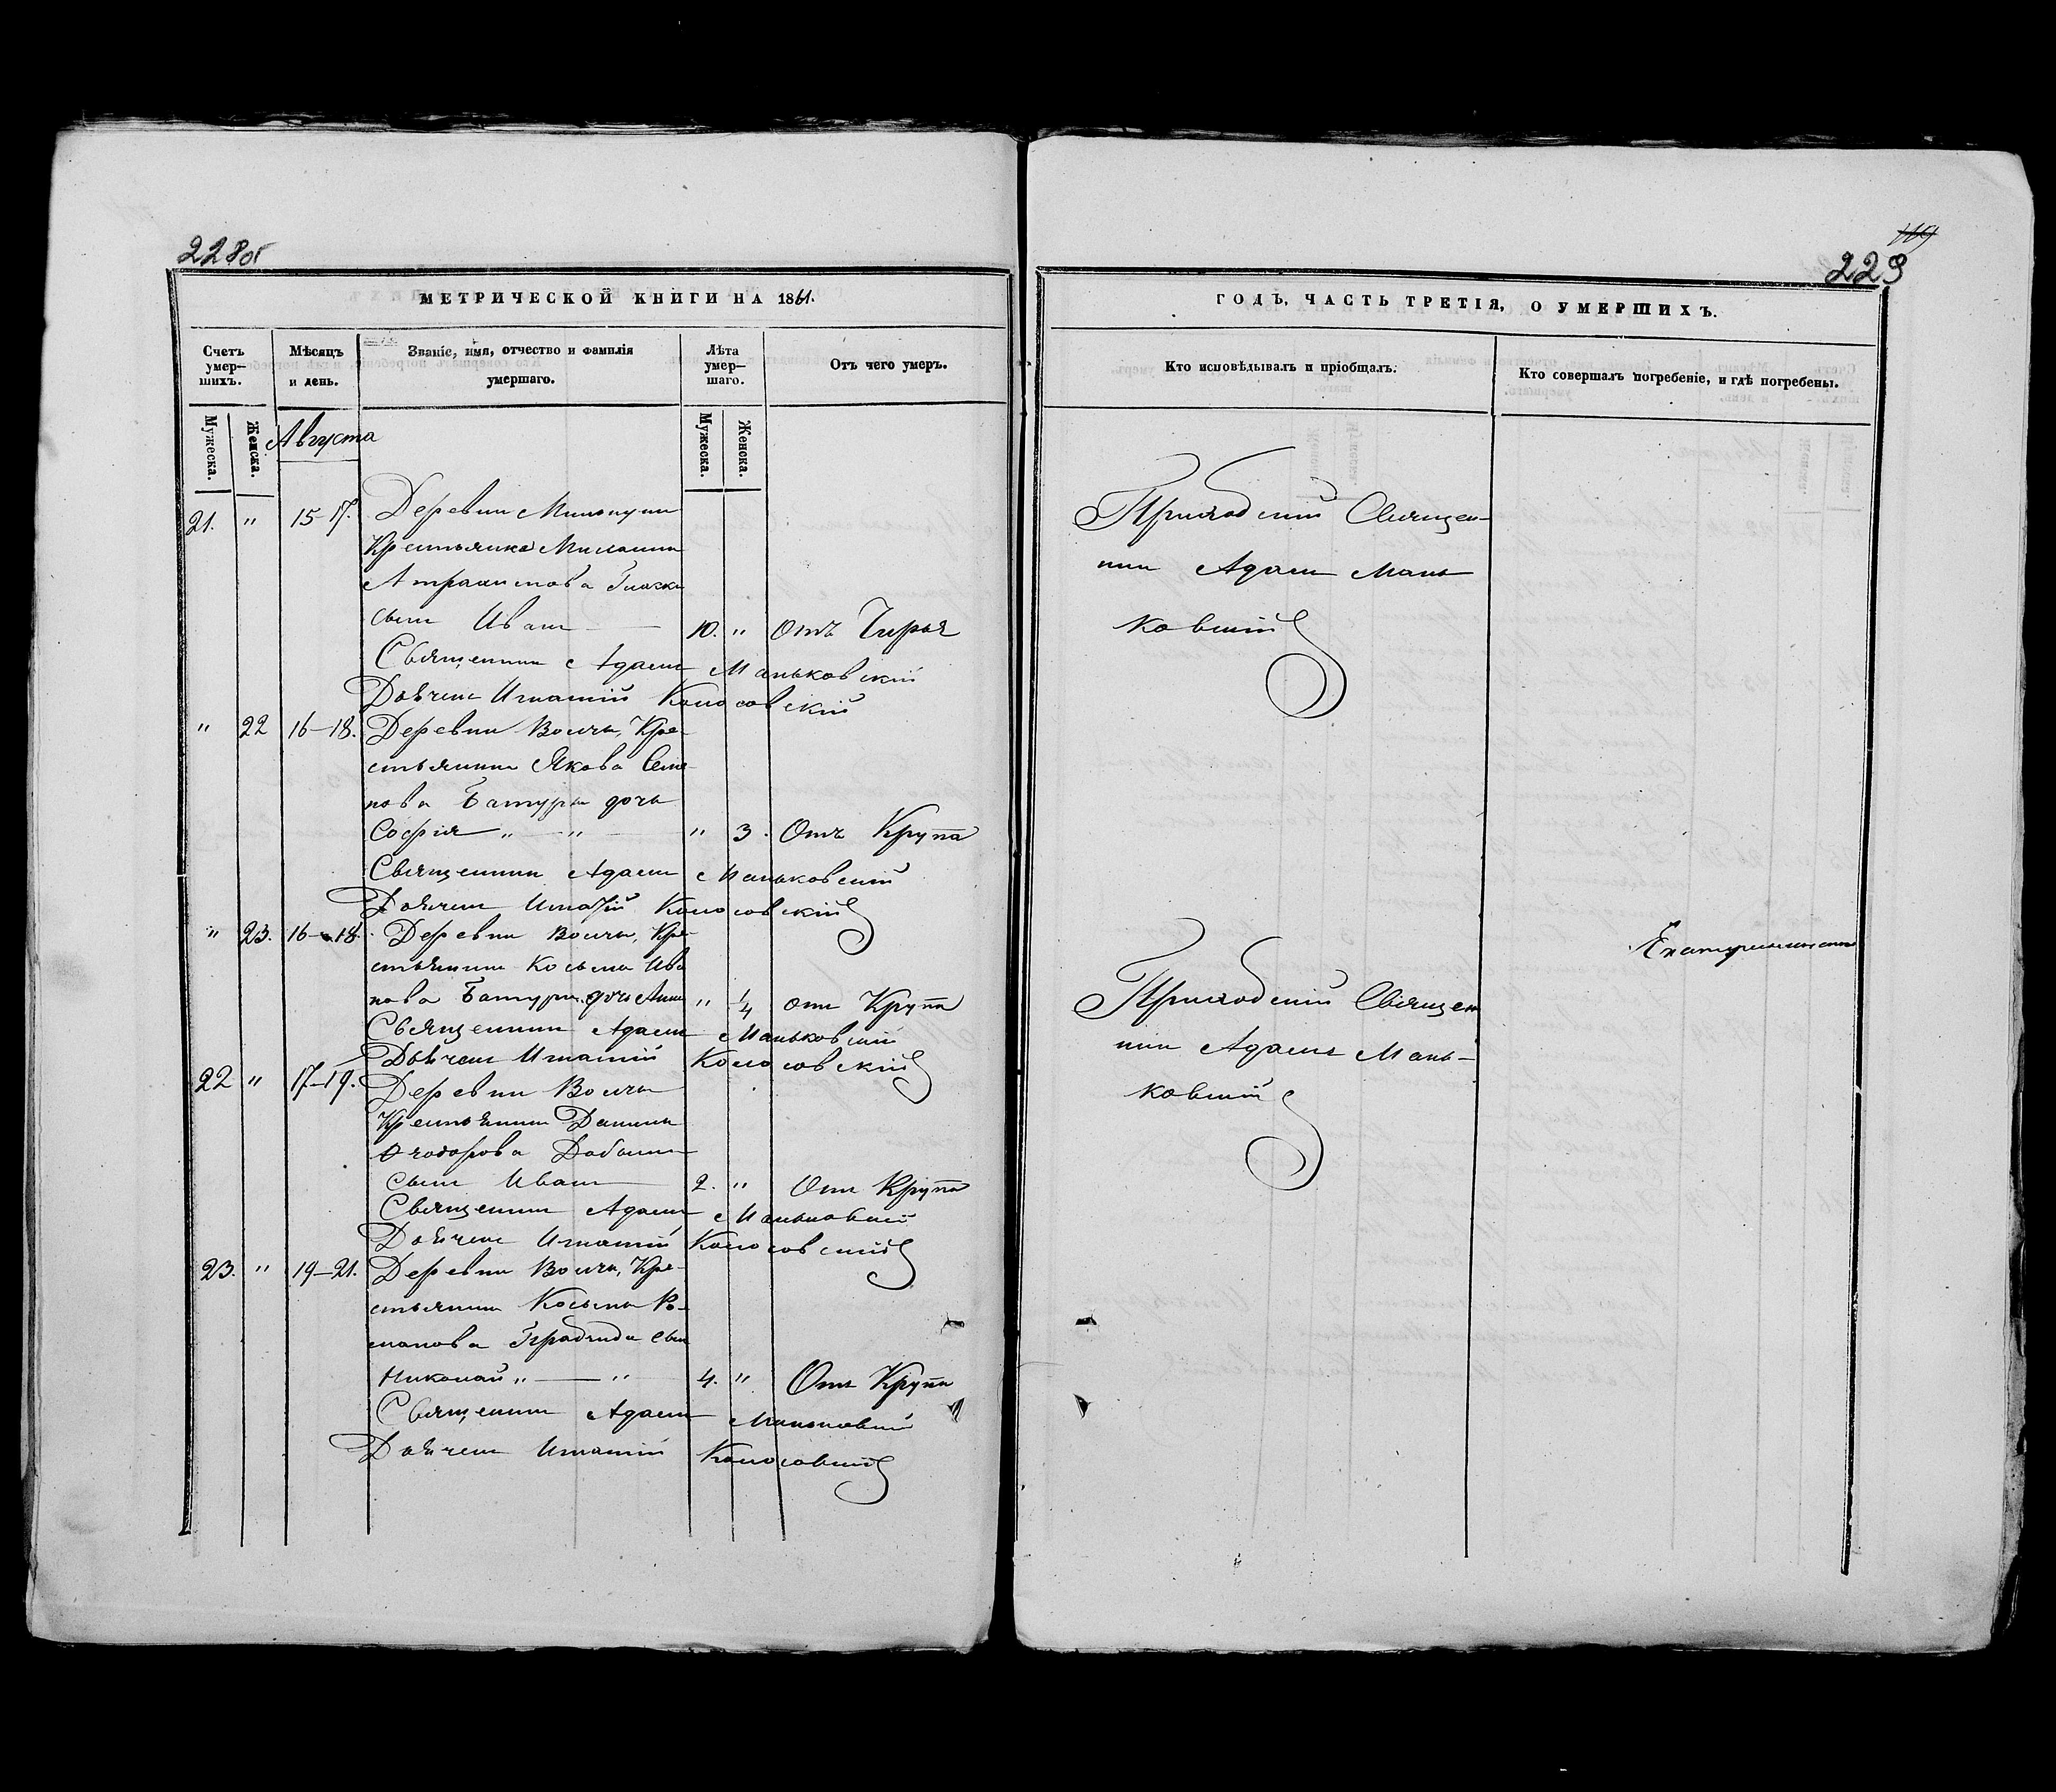 228об
МЕТРИЧЕСКОЙ КНИГИ НА 1861.
Счетъ умер—шихъ.
Мѣсяцъ и день.
Званіе, имя, отчество и фамилія умершаго.
Лѣта умер—шаго.
Отъ чего умеръ.
Мужеска.
Женска.
Августа
Мужеска.
Женска.
21. " 15-17. Деревни
Крестьянина
сынъ Иванъ 10. " Отъ
Священникъ Адамъ Маньковскій
Дьячекъ Игнатій Колосовскій
" 22 16-18. Деревни Волчи, Кре-
стьянина Якова Семе-
нова Батуры дочь
Софія " — " " 3. Отъ Крупа
Священникъ Адамъ Маньковскій
Дьячекъ Игнатій Колосовскій
" 23. 16-18. Деревни Волчи, Кре-
стьянина Косьмы Ива
нова Батуры дочь Анна " 1/4 отъ Крупа
Священникъ Адамъ Маньковскій
Дьячекъ Игнатій Колосовскій
22 " 17-19. Деревни Волчи
Крестьянина Данилы
Ѳеодорова
сынъ Иванъ 2. " Отъ Крупа
Священникъ Адамъ Маньковскій
Дьячекъ Игнатій Колосовскій
23. " 19-21. Деревни Волчи, Кре-
стьянина Косьмы Ро-
манова сынъ
Николай " — " 4. " Отъ Крупа
Священникъ Адамъ Маньковскій
Дьячекъ Игнатій Колосовскій
119
229
ГОДЪ, ЧАСТЬ ТРЕТІЯ, О УМЕРШИХЪ.
Кто исповѣдывалъ и пріобщалъ.
Кто совершалъ погребеніе, и гдѣ погребены.
Приходскій Священ-
никъ Адамъ Мань
ковскій
Приходскій Священ
никъ Адамъ Мань-
ковскій